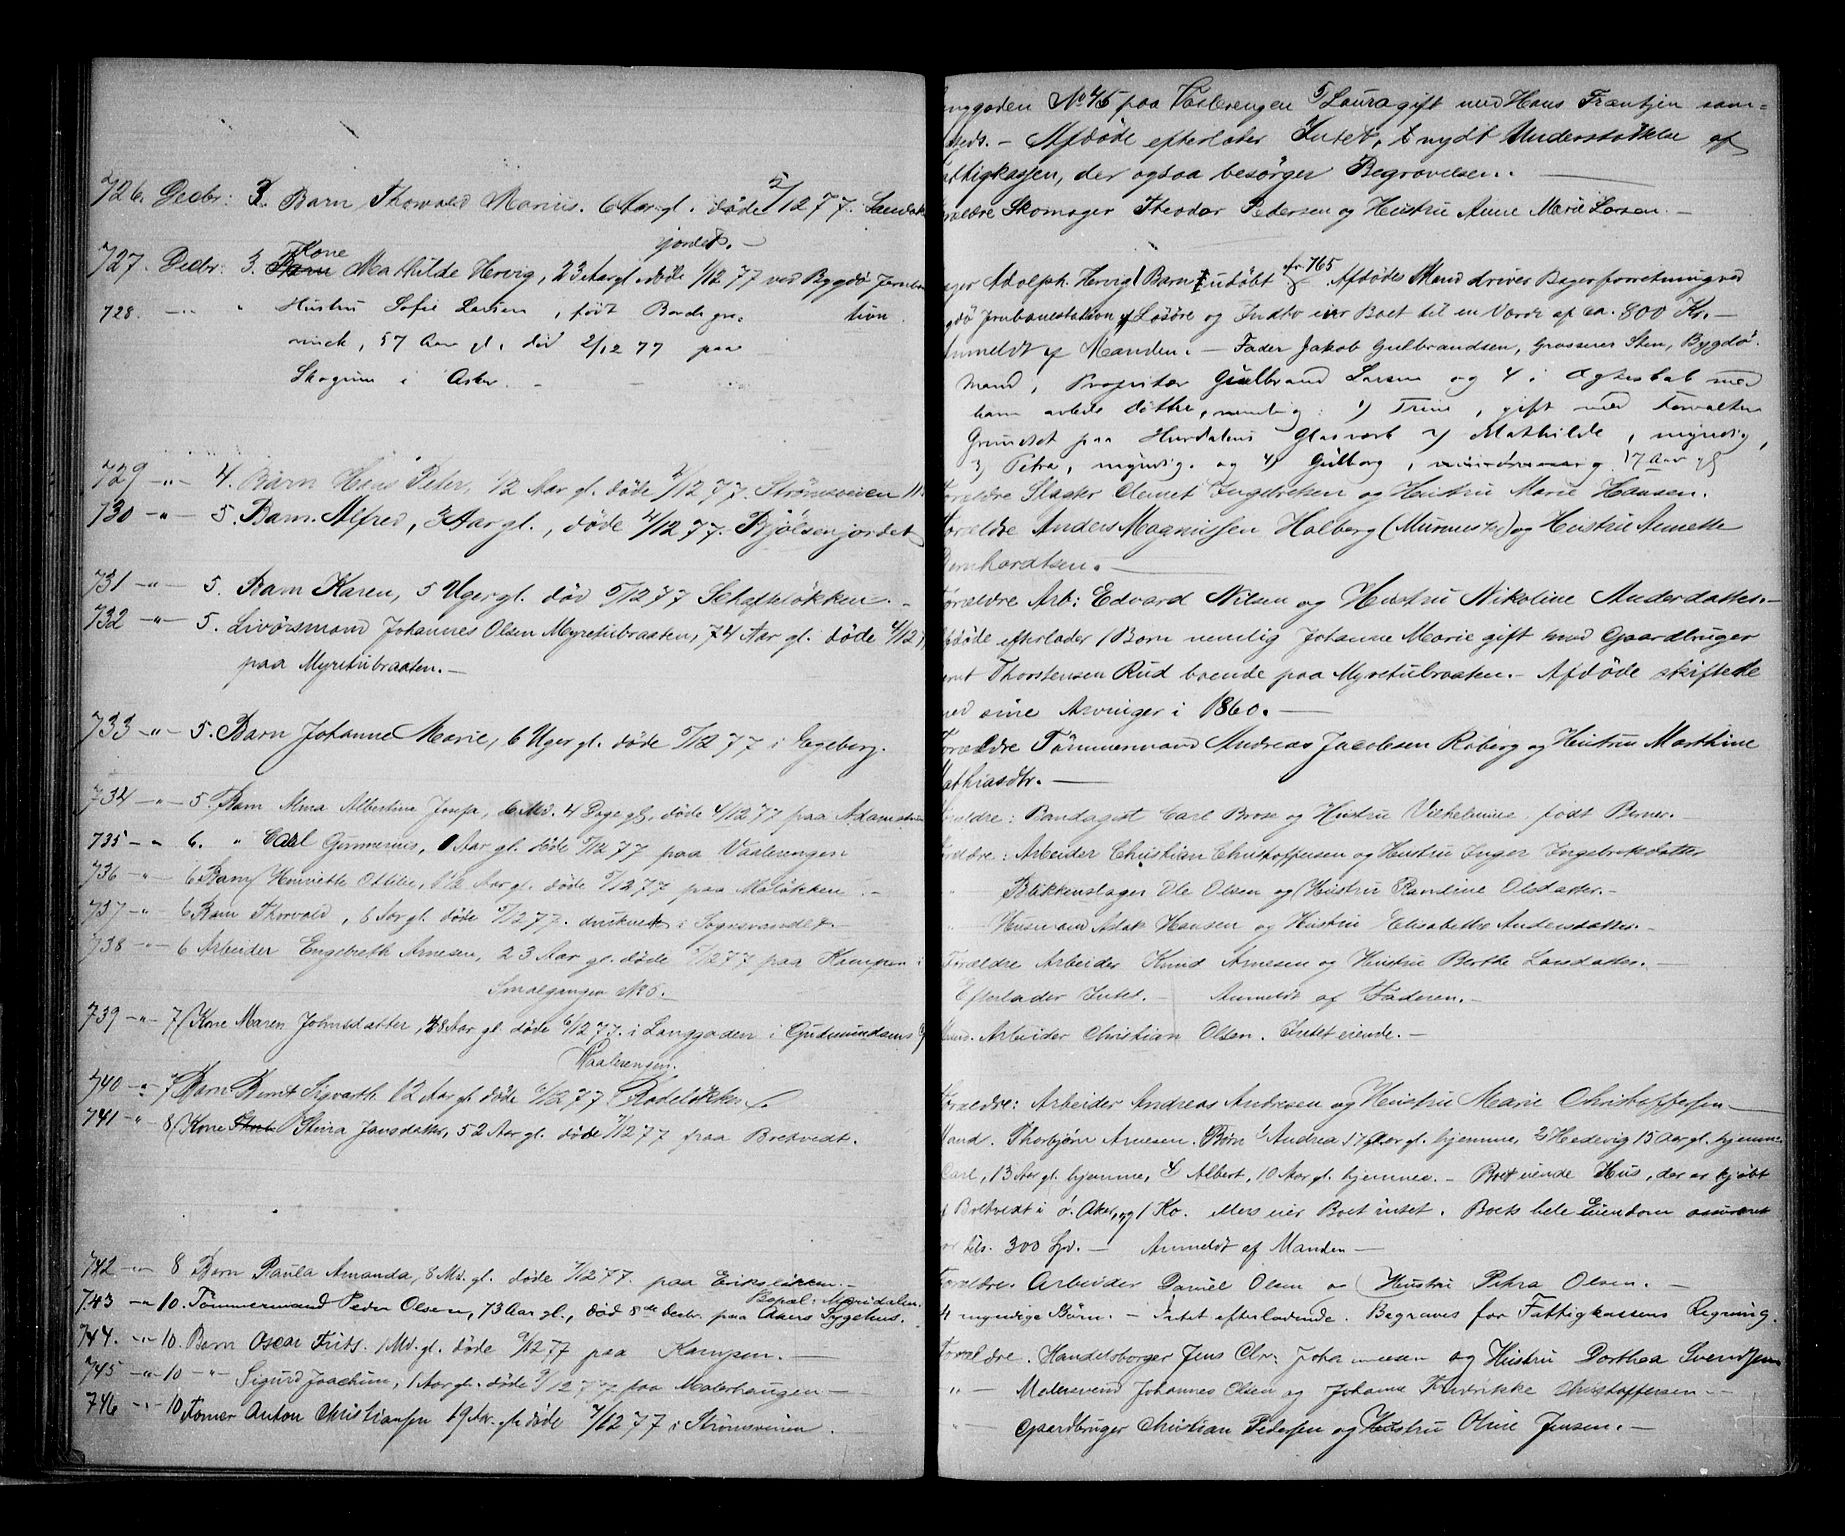 726. Decbr: 3. Barn Thorvald Marius. 6 Aar gl. døde 2/12 77. Sandak
jordet. —
727. Decbr: 3. Kone Mathilde Hervig, 23 Aar gl. døde 1/12 77 ved Bygdø Jernba
tion
728. —"— " Hustru Sofie Larsen, født Borde gre-
vinck, 57 Aar gl. død 2/12 77 paa
Skogum i Asker. —
729 —"— 4. Barn Hans Peter, 1/2 Aar gl. døde 2/12 77. Strømsveien 11
730 —"— 5. Barn Alfred, 3 Aar gl., døde 4/12 77. Bjølsenjordet
731 —"— 5. Barn Karen, 5 Uger gl. død 5/12 77 Schafteløkken. —
732 —"— 5. Livørsmand Johannes Olsen Myretubraaten, 74 Aar gl. døde 4/12 7
paa Myretubraaten. —
733 —"— 5. Barn Johanne Marie, 6 Uger gl. døde 5/12 77 i Egeberg.
734 —"— 5. Barn Alma Albertine Josefa, 6 Md. 4 Dage gl. døde 4/12 77 paa Adams
735 —"— 6. " Carl Gunnerius, 1 Aar gl. døde 5/12 77 paa Vaalerengen
736 —"— 6 Barn Henriette Ottilie, 1/2 Aar gl. døde 5/12 77 paa Maløkken. —
737 —"— 6 Barn Thorvald, 6 Aar gl. døde 5/12 77. druknet i Sognsvandet —
738 —"— 6 Arbeider Engebreth Arnesen, 23 Aar gl. døde 5/12 77 paa Kampen i
Smalgangen No 6. —
739 —"— 7 Kone Maren Johnsdatter, 48 Aar gl. døde 6/12 77. i Langgaden i Gudmundsens G
Vaalerengen.
740 —"— 7 Barn Bernt Sigvarth 12 Aar gl. døde 6/12 77 Rodeløkken.
741 —"— 8 Kone Stina Jansdatter, 52 Aar gl. døde 7/12 77 fraa Bredtvedt.
742 —"— 8 Barn Paula Amanda, 8 Md. gl. døde 7/12 77. paa Erikslien. —
743 —"— 10. Tømmermand Peder Olsen, 73 Aar gl., død 8de Decbr. paa Akers Sygehus. Bopæl: Maridalen.
744. —"— 10. Barn Oscar Frits. 1 Md. gl. døde 9/12 77 paa Kampen. —
745 —"— 10 —"— Sigurd Joachim, 1 Aar gl. døde 9/12 77 paa Malerhaugen —
746 —"— 10 Tømer Anton Christiansen 19 Aar gl. døde 7/12 77 i Strømsveien.
nggaden No 45 paa Vaalerengen 5) Laura gift med Hans Frantzen sam=
steds. — Afdøde efterlader Intet, & nydt Understøttelse af
attigkassen, der ogsaa besørger Begravelsen. —
rældre Skomager Theodor Pedersen og Hustru Anne Marie Larsen. —
ager Adolph Hervig 1 Barn udøbt cfr. 765 Afdødes Mand driver Bagerforretning ved
gdø Jernbanestation & Løsøre og Indbo eier Boet til en Værdi af ca. 800 Kr. —
Anmeldt af Manden. — Fader Jakob Gulbrandsen, Grosserer Sten, Bygdø.
Mand, Proprietær Gulbrand Larsen og 4 i Ægteskab med
ham avlede døttre, nemlig: 1) Trine, gift med Forvalter
Grundset paa Hurdalens Glasværk 2) Mathilde, myndig,
3) Petra, myndig. og 4) Gulborg, mindreaarig. 17 Aar gl
orældre Slagter Clemet Ingebretsen og Hustru Marie Hansen.
orældre Anders Magnussen Holberg (Murmester) og Hustru Annette
ernhardtsen. —
Forældre Arb: Edvard Nilsen og Hustru Nikoline Andersdatter. —
fdøde efterlader 1 Barn nemlig Johanne Marie gift med Gaardbruger
ernt Thorstensen Rud boende paa Myretubraaten. — Afdøde skiftede
med sine Arvinger i 1860. —
Forældre Tømmermand Andreas Jacobsen Roberg og Hustru Marthine
Mathiasdtr. —
Forældre: Bandagist Carl Brose og Hustru Vilhelmine, født Berner. —
Forældre: Arbeider Christian Christoffersen og Hustru Inger Ingebretsdatter
" Blikkenslager Ole Olsen og Hustru Randine Olsdatter. —
" Husmand Aslak Hansen og Hustru Elisabethe Andersdatter. —
Forældre Arbeider Knud Arnesen og Hustru Berthe Larsdatter. —
Efterlader Intet. — Anmeldt af Faderen. —
Mand. Arbeider Christian Olsen. Intet eiende. —
Forældre: Arbeider Andreas Andresen og Hustru Marie Christoffersen —
Mand. Thorbjørn Arnesen. Børn 1) Andrea 17 Aar gl. hjemme, 2) Hedevig 15 Aar gl. hjemme
Carl, 13 Aar gl. hjemme, 4) Albert, 10 Aar gl. hjemme. — Boet eiende Hus, der er kjøbt
Bredtvedt i Ø. Aker, og 1 Ko. Mere eier Boet intet. Boets hele Eiendom assureret
or tils. 300 Spd. — Anmeldt af Manden —
Forældre. Arbeider Daniel Olsen og Hustru Petra Olsen. —
4 myndige Børn. — Intet efterladende. Begraves for Fattigkassens Regning.
Forældre. Handelsborger Jens Chr. Johannesen og Hustru Dorthea Svendsen
" — Malersvend Johannes Olsen og Johanne Fredrikke Christoffersen —
" Gaardbruger Christian Pedersen og Hustru Oline Jensen. —